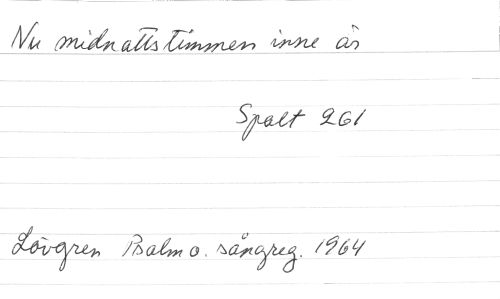 Nu midnattstimmen inne är
Spalt 261
Lövgren Psalm o. sångreg. 1964